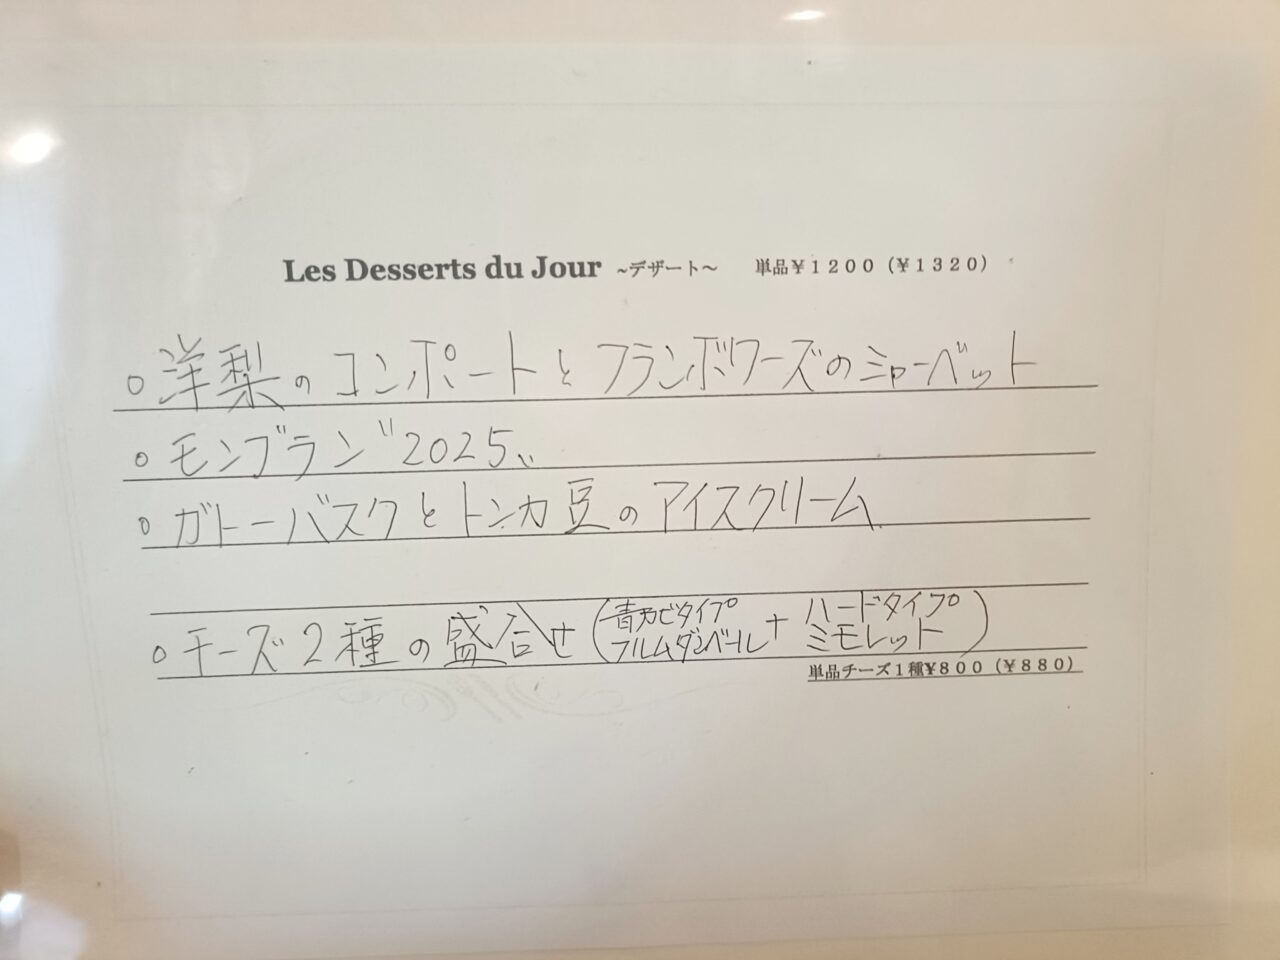 Les Desserts du Jour ~デザート~ 単品¥1200(¥1320)
○洋梨のコンポートとフランボワーズのシャーベット
○モンブラン"2025"
○ガトーバスクとトンカ豆のアイスクリーム
○チーズ2種の盛合せ(青カビタイプ フルムダンベール+ハードタイプ ミモレット)
単品チーズ1種¥800(¥880)